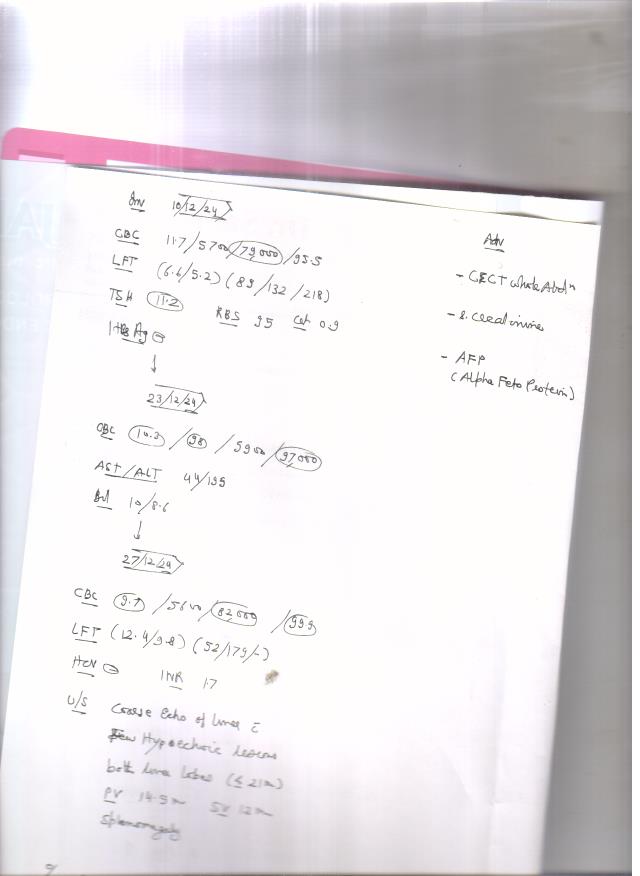 Inv 10/12/24
CBC 11.7/5700/79000/95.5
LFT (6.6/5.2) (89/132/218)
TSH 11.2 RBS 95 0.9
HBs Ag ⊖
↓
23/12/24
CBC 10.3/98/5900/97000
AST/ALT 44/195
Bil 10/8.6
↓
27/12/24
CBC 9.7/5600/82,000/99.9
LFT (12.4/9.8) (52/179/-)
HCV ⊖ INR 1.7
U/S Coarse Echo of liver c̄
few Hypoechoic lesions
both liver lobes (≤ 21m)
PV 14.9m SV 12m
Splenomegaly
Adv
- CECT whole Abdn
- S. Creatinine
- AFP
(Alpha Feto Protein)